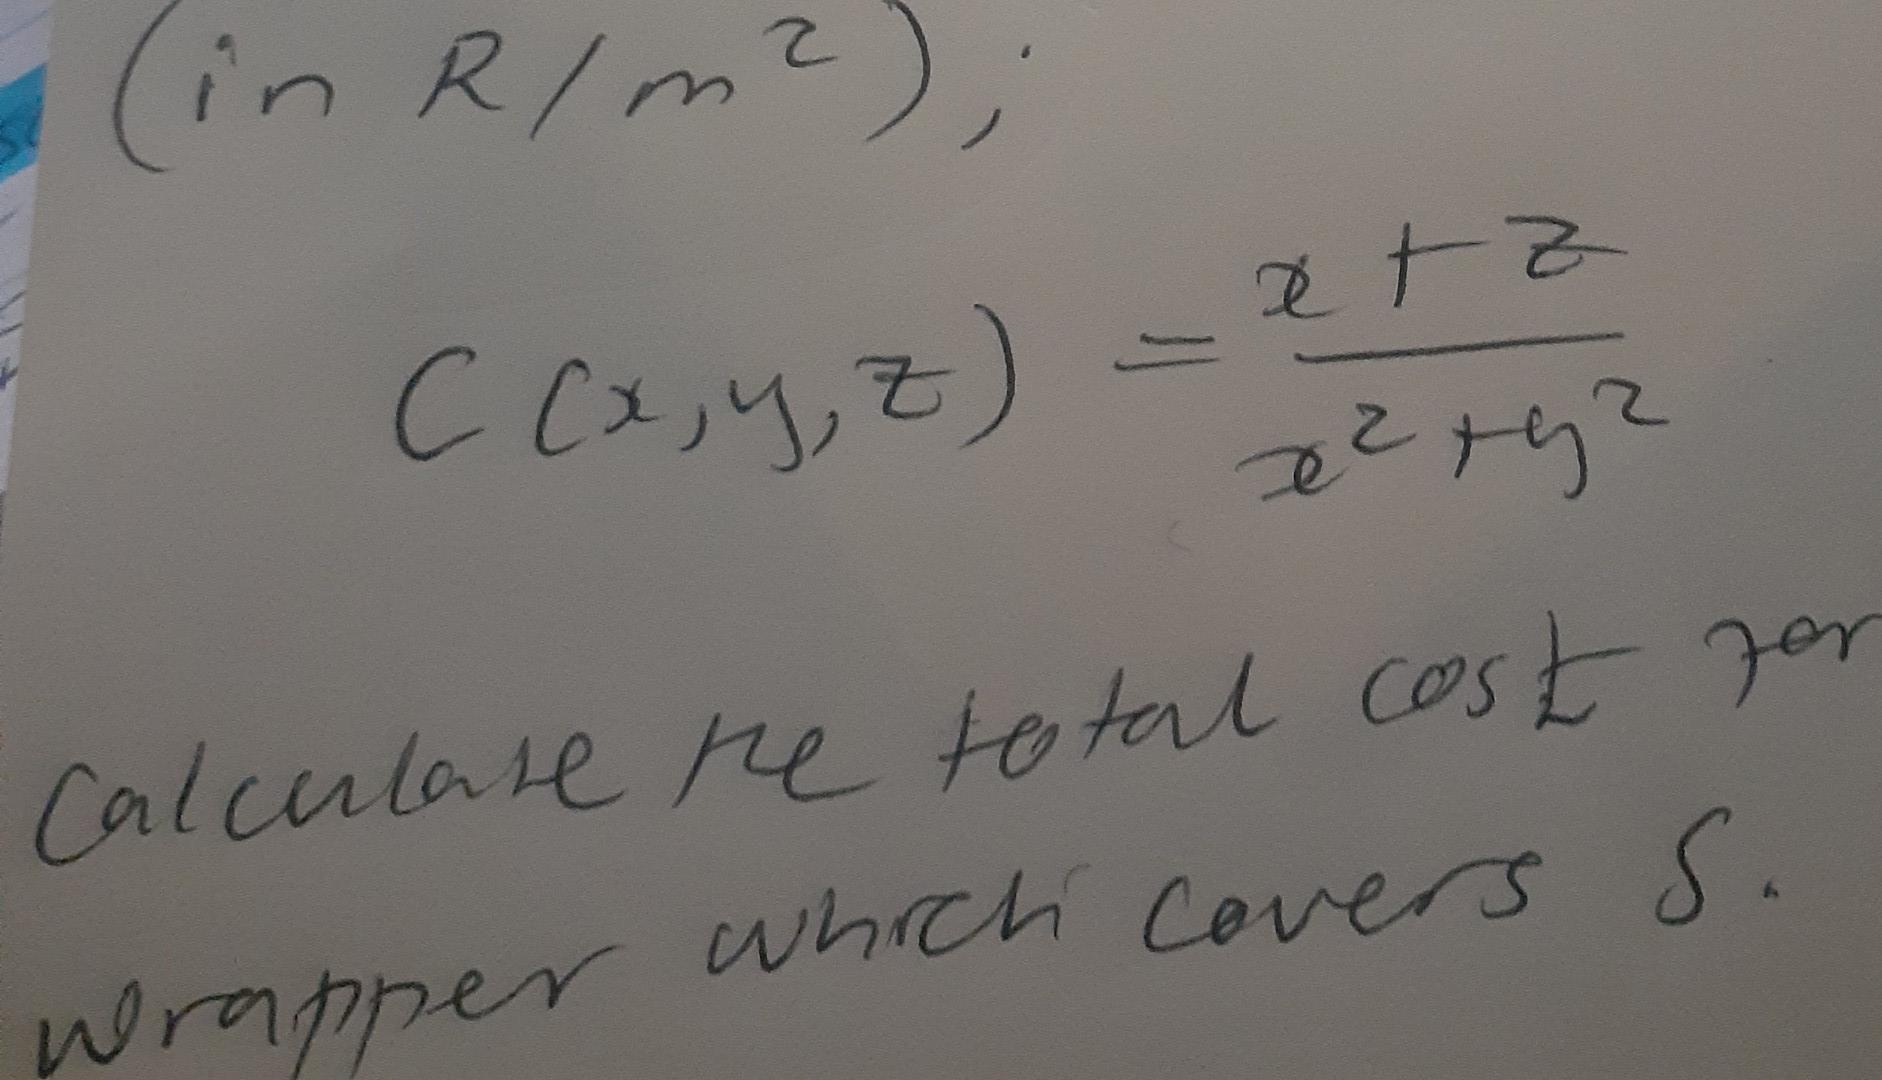 (in R/m²);
C(x,y,z) = \frac{x+z}{x²+y²}
Calculate the total cost for
wrapper which covers S.